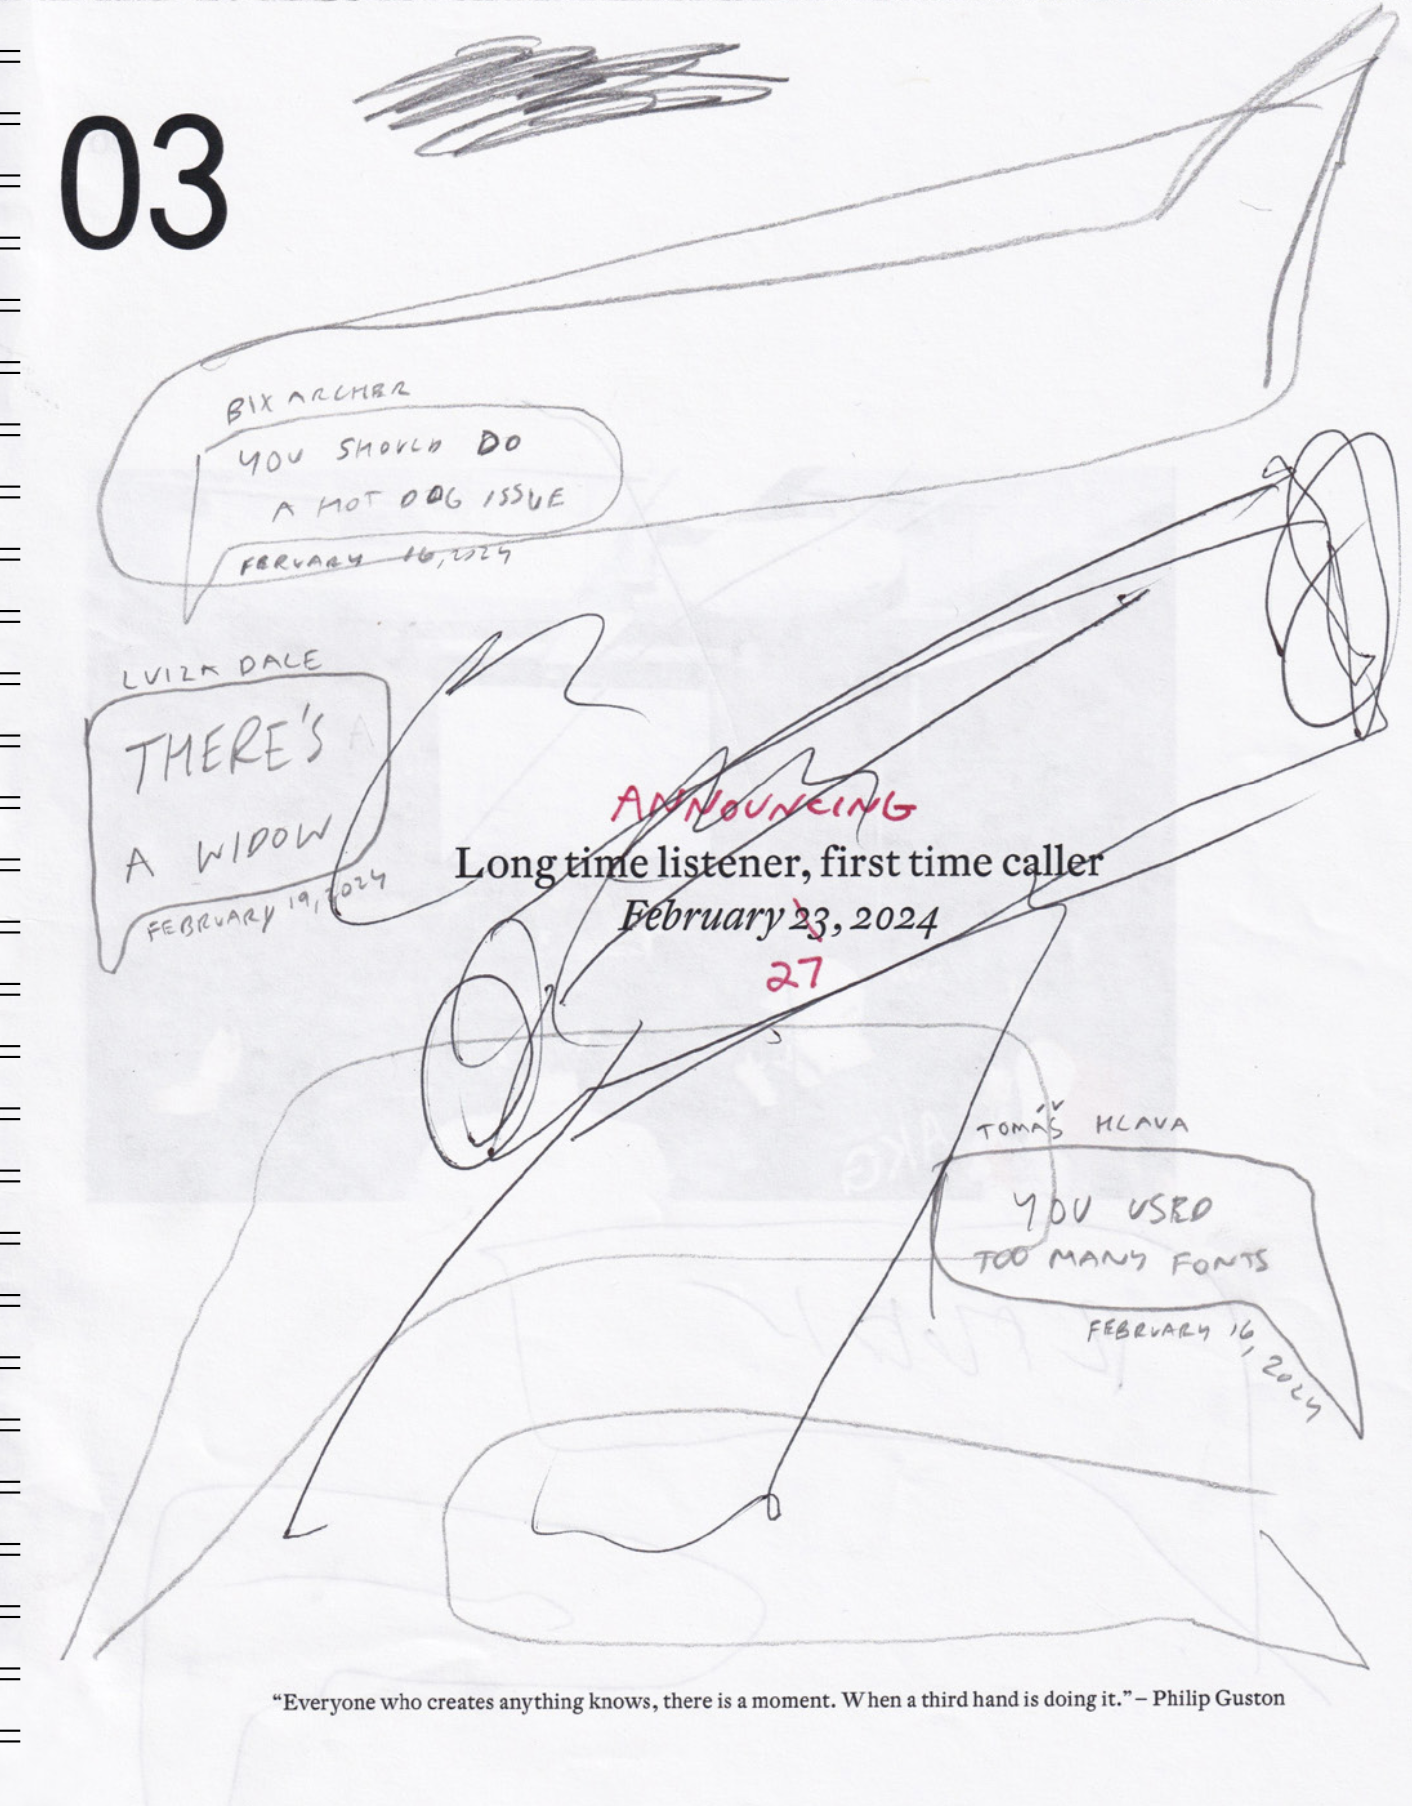 03
BIX ARCHER
YOU SHOULD DO
A HOT DOG ISSUE
FEBRUARY 16, 2024
LUIZA DALE
THERE'S
A WIDOW
FEBRUARY 19, 2024
ANNOUNCING
Long time listener, first time caller
February 23, 2024
27
TOMÁŠ HLAVA
YOU USED
TOO MANY FONTS
FEBRUARY 16, 2024
“Everyone who creates anything knows, there is a moment. When a third hand is doing it.” – Philip Guston